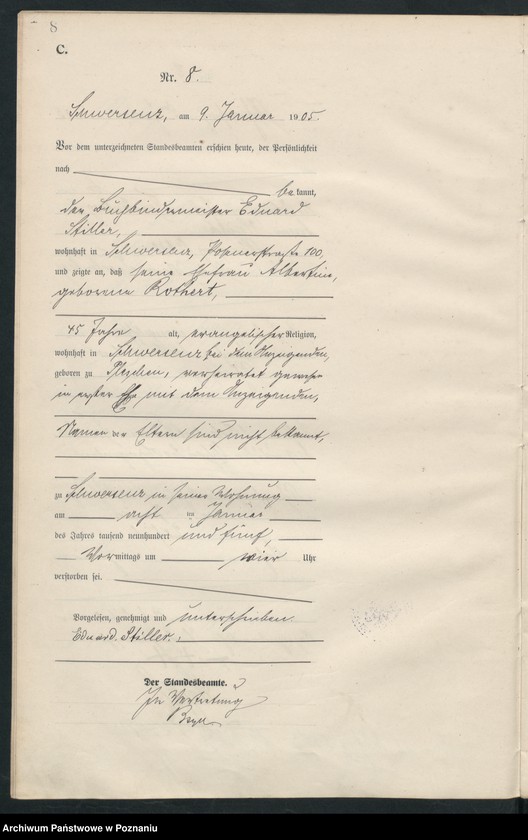 8
C.
Nr. 8.
Schwersenz, am 9. Januar 1905.
Vor dem unterzeichneten Standesbeamten erschien heute, der Persönlichkeit
nach
be kannt,
der Buchbindermeister Eduard
Stiller,
wohnhaft in Schwersenz, Posenerstraße 100,
und zeigte an, daß seine Ehefrau Albertine,
geborene Rothert,
45 Jahre alt, evangelischer Religion,
wohnhaft in Schwersenz bei dem Anzeigenden,
geboren zu Pleschen, verheiratet gewesen
in erster Ehe mit dem Anzeigenden,
Namen der Eltern sind nicht bekannt,
zu Schwersenz in seiner Wohnung
am acht ten Januar
des Jahres tausend neunhundert und fünf,
Vor mittags um vier Uhr
verstorben sei.
Vorgelesen, genehmigt und unterschrieben
Eduard Stiller.
Der Standesbeamte.
In Vertretung
Archiwum Państwowe w Poznaniu